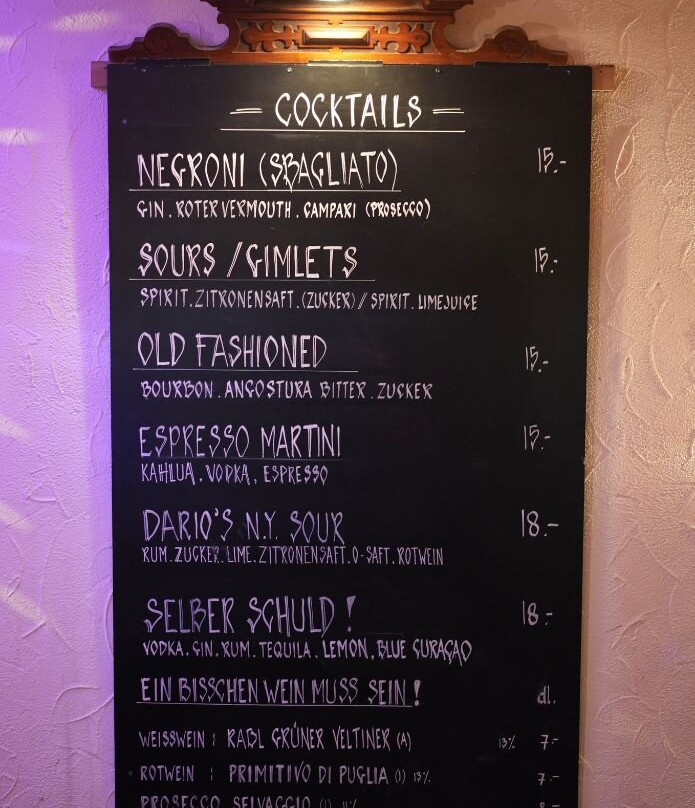 — COCKTAILS —
NEGRONI (SBAGLIATO) 15.-
GIN . ROTER VERMOUTH . CAMPARI (PROSECCO)
SOURS / GIMLETS 15.-
SPIRIT . ZITRONENSAFT . (ZUCKER) / SPIRIT . LIMEJUICE
OLD FASHIONED 15.-
BOURBON . ANGOSTURA BITTER . ZUCKER
ESPRESSO MARTINI 15.-
KAHLUA . VODKA , ESPRESSO
DARIO'S N.Y. SOUR 18.-
RUM . ZUCKER . LIME . ZITRONENSAFT . O-SAFT . ROTWEIN
SELBER SCHULD ! 18.-
VODKA . GIN . RUM . TEQUILA . LEMON . BLUE CURAÇAO
EIN BISSCHEN WEIN MUSS SEIN ! dl.
WEISSWEIN : RABL GRÜNER VELTINER (A) 13% 7.-
ROTWEIN : PRIMITIVO DI PUGLIA (I) 13% 7.-
PROSECCO SELVAGGIO (I) 11%